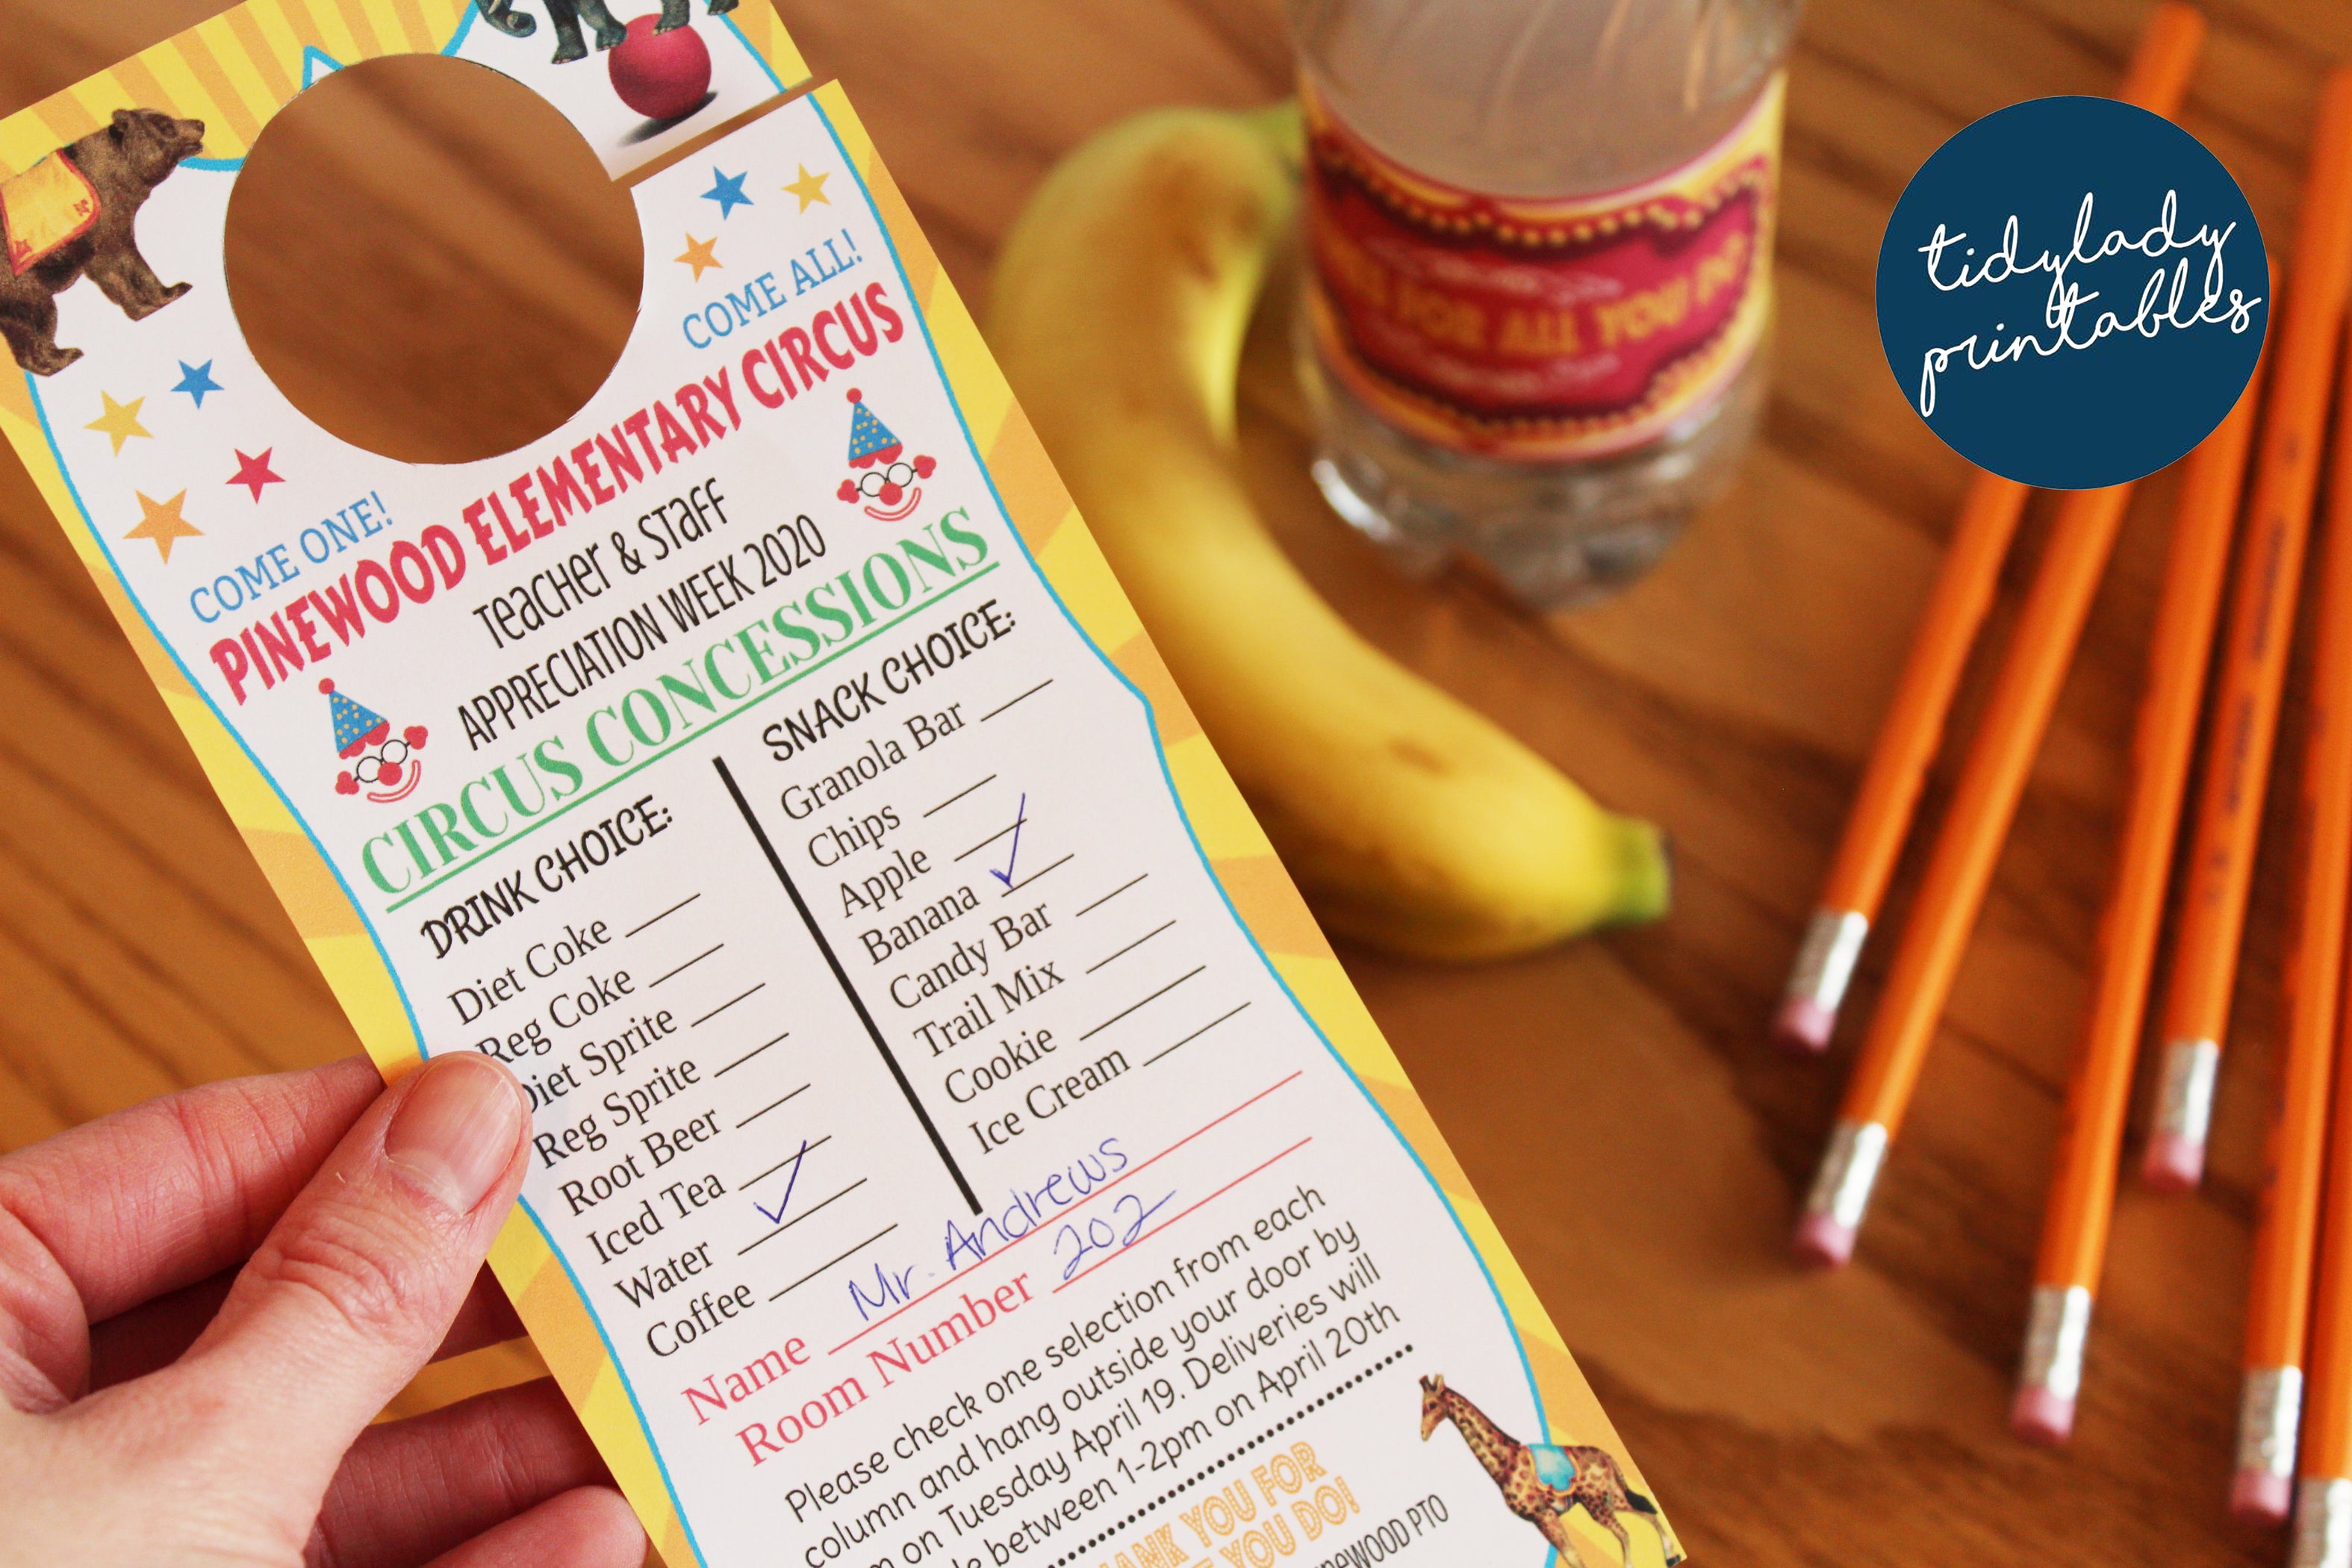 COME ONE!
COME ALL!
PINEWOOD ELEMENTARY CIRCUS
Teacher & Staff
APPRECIATION WEEK 2020
CIRCUS CONCESSIONS
DRINK CHOICE:
Diet Coke
Reg Coke
Diet Sprite
Reg Sprite
Root Beer
Iced Tea
Water ✓
Coffee
SNACK CHOICE:
Granola Bar
Chips
Apple
Banana ✓
Candy Bar
Trail Mix
Cookie
Ice Cream
Name Mr. Andrews
Room Number 202
Please check one selection from each
column and hang outside your door by
on Tuesday April 19. Deliveries will
between 1-2pm on April 20th
YOU FOR
YOU DO!
PINEWOOD PTO
FOR ALL YOU
tidylady
printables